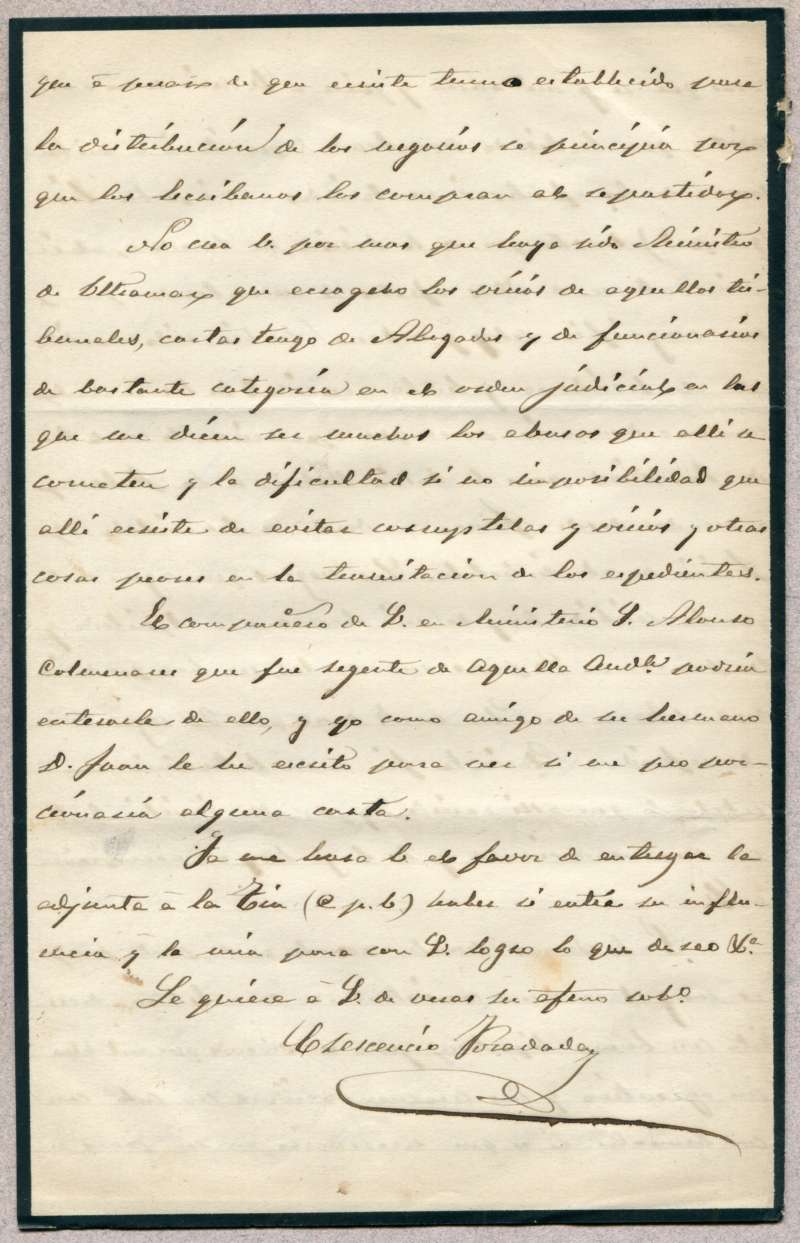 que á pesar de que ecsiste turno establecido para
la distribución de los negocios se principia por
que los Escribanos los compran al repartidor.
No crea V. por mas que haya sido Ministro
de Ultramar que ecsagero los vicios de aquellos tri-
bunales, cartas tengo de Abogados y de funcionarios
de bastante categoría en el orden judicial en las
que me dicen ser muchos los abusos que alli se
cometen y la dificultad si no imposibilidad que
alli ecsiste de evitar corruptelas y vicios y otras
cosas peores en la tramitacion de los espedientes.
El compañero de V. en Ministerio S. Alonso
Colmenares que fue regente de aquella Aud.ª podria
enterarle de ello, y yo como amigo de su hermano
D. Juan le he escrito para ver si me propor-
cionaria alguna carta.
Ya me hara V. el favor de entregar la
adjunta á la Tia (c. p. b.) haber si entre su influ-
encia y la mia para con V. logro lo que deseo
Le quiere á V. de veras su afmo sob.º
Crescencio Posadada